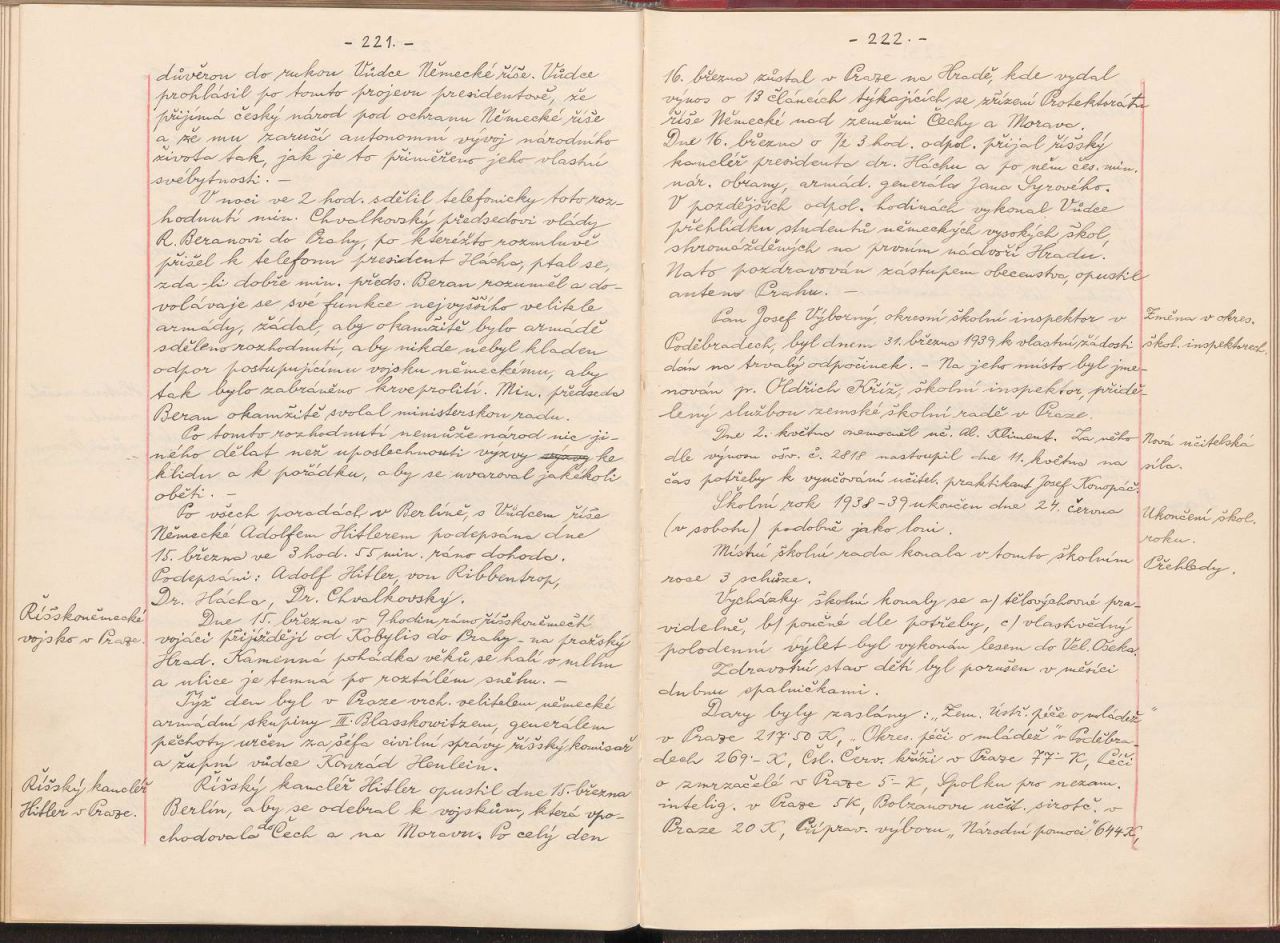 - 221. -
důvěrou do rukou Vůdce Německé říše. Vůdce
prohlásil po tomto projevu presidentově, že
přijímá český národ pod ochranu Německé říše
a že mu zaručí autonomní vývoj národního
života tak, jak je to přiměřeno jeho vlastní
svébytnosti. -
V noci ve 2 hod. sdělil telefonicky toto roz-
hodnutí min. Chvalkovský předsedovi vlády
R. Beranovi do Prahy, po kteréžto rozmluvě
přišel k telefonu president Hácha, ptal se,
zda-li dobře min. předs. Beran rozuměl a do-
volávaje se své funkce nejvyššího velitele
armády, žádal, aby okamžitě bylo armádě
sděleno rozhodnutí, aby nikde nebyl kladen
odpor postupujícímu vojsku německému, aby
tak bylo zabráněno krveprolití. Min. předseda
Beran okamžitě svolal ministerskou radu.
Po tomto rozhodnutí nemůže národ nic ji-
ného dělat než uposlechnouti výzvy výzvy ke
klidu a k pořádku, aby se uvaroval jakékoli
oběti. -
Po všech poradách v Berlíně s Vůdcem říše
Německé Adolfem Hitlerem podepsána dne
15. března ve 3 hod. 55 min. ráno dohoda.
Podepsáni: Adolf Hitler, von Ribbentrop,
Dr. Hácha, Dr. Chvalkovský.
Říšskoněmecké
vojsko v Praze.
Dne 15. března v 9 hodin ráno říškoněmečtí
vojáci přijíždějí od Kobylis do Prahy - na pražský
Hrad. Kamenná pohádka věků se halí o mlhu
a ulice je temná po roztálém sněhu. -
Týž den byl v Praze vrch. velitelem německé
armádní skupiny III. Blasskowitzem, generálem
pěchoty určen za šéfa civilní správy říšský komisař
a župní vůdce Konrád Henlein.
Říšský kancléř
Hitler v Praze.
Říšský kancléř Hitler opustil dne 15. března
Berlín, aby se odebral k vojskům, která vpo-
chodovala do Čech a na Moravu. Po celý den
- 222. -
16. března zůstal v Praze na Hradě, kde vydal
výnos o 13 článcích týkajících se zřízení Protektorátu
říše Německé nad zeměmi Čechy a Morava.
Dne 16. března o 1/2 3 hod. odpol. přijal říšský
kancléř presidenta dr. Háchu a po něm čes. min.
nár. obrany, armád. generála Jana Syrového.
V pozdějších odpol. hodinách vykonal Vůdce
přehlídku studentů německých vysokých škol,
shromážděných na prvním nádvoří Hradu.
Nato pozdravován zástupem obecenstva, opustil
autem Prahu. -
Změna v okres.
škol. inspektorát.
Pan Josef Výborný, okresní školní inspektor v
Poděbradech, byl dnem 31. března 1939 k vlastní žádosti
dán na trvalý odpočinek. - Na jeho místo byl jme-
nován p. Oldřich Kříž, školní inspektor, přidě-
lený službou zemské školní radě v Praze.
Nová učitelská
síla.
Dne 2. května onemocněl uč. Al. Kliment. Za něho
dle výnosu ošv. č. 2818 nastoupil dne 11. května na
čas potřeby k vyučování učitel. praktikant Josef Konopáč.
Ukončení škol.
roku.
Školní rok 1938-39 ukončen dne 24. června
(v sobotu) podobně jako loni.
Přehledy.
Místní školní rada konala v tomto školním
roce 3 schůze.
Vycházky školní konaly se a) tělovýchovné pra-
videlně, b) poučné dle potřeby, c) vlastivědný
polodenní výlet byl vykonán lesem do Vel. Oseka.
Zdravotní stav dětí byl porušen v měsíci
dubnu spalničkami.
Dary byly zaslány: "Zem. ústř. péče o mládež"
v Praze 217·50 K, "Okres. péči o mládež" v Poděbra-
dech 269·- K, Čsl. Červ. kříži v Praze 77·- K, Péči
o zmrzačelé v Praze 5·- K, Spolku pro nezam.
intelig. v Praze 5K, Bolzanovu učit. sirotč. v
Praze 20 K, Příprav. výboru "Národní pomoci" 644 K,